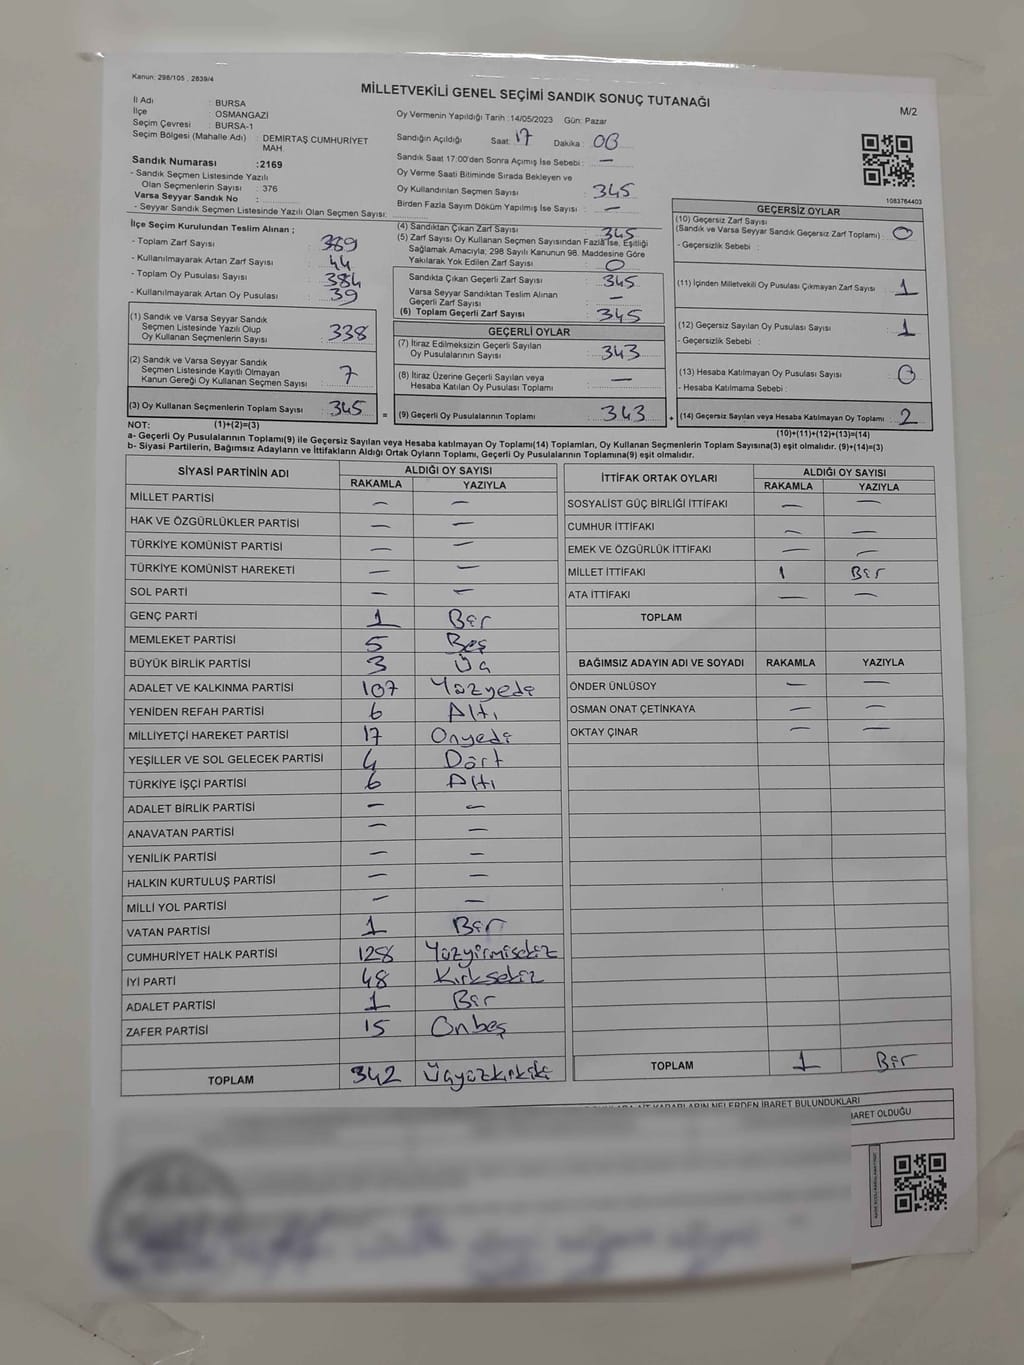 Kanun: 298/105 , 2839/4
MİLLETVEKİLİ GENEL SEÇİMİ SANDIK SONUÇ TUTANAĞI
M/2
İl Adı : BURSA
İlçe : OSMANGAZİ
Seçim Çevresi : BURSA-1
Seçim Bölgesi (Mahalle Adı) : DEMİRTAŞ CUMHURİYET
MAH
Sandık Numarası :2169
- Sandık Seçmen Listesinde Yazılı
Olan Seçmenlerin Sayısı : 376
Varsa Seyyar Sandık No :
- Seyyar Sandık Seçmen Listesinde Yazılı Olan Seçmen Sayısı:
Oy Vermenin Yapıldığı Tarih :14/05/2023 Gün: Pazar
Sandığın Açıldığı Saat: 17 Dakika : 00
Sandık Saat 17:00'den Sonra Açımış İse Sebebi : —
Oy Verme Saati Bitiminde Sırada Bekleyen ve
Oy Kullandırılan Seçmen Sayısı : 345
Birden Fazla Sayım Döküm Yapılmış İse Sayısı : —
1083764403
İlçe Seçim Kurulundan Teslim Alınan ;
- Toplam Zarf Sayısı : 389
- Kullanılmayarak Artan Zarf Sayısı : 44
- Toplam Oy Pusulası Sayısı : 384
- Kullanılmayarak Artan Oy Pusulası : 39
(1) Sandık ve Varsa Seyyar Sandık
Seçmen Listesinde Yazılı Olup
Oy Kullanan Seçmenlerin Sayısı : 338
(2) Sandık ve Varsa Seyyar Sandık
Seçmen Listesinde Kayıtlı Olmayan
Kanun Gereği Oy Kullanan Seçmen Sayısı : 7
(3) Oy Kullanan Seçmenlerin Toplam Sayısı : 345
(4) Sandıktan Çıkan Zarf Sayısı : 345
(5) Zarf Sayısı Oy Kullanan Seçmen Sayısından Fazla İse, Eşitliği
Sağlamak Amacıyla; 298 Sayılı Kanunun 98. Maddesine Göre
Yakılarak Yok Edilen Zarf Sayısı : 0
Sandıkta Çıkan Geçerli Zarf Sayısı : 345
Varsa Seyyar Sandıktan Teslim Alınan
Geçerli Zarf Sayısı : —
(6) Toplam Geçerli Zarf Sayısı : 345
GEÇERLİ OYLAR
(7) İtiraz Edilmeksizin Geçerli Sayılan
Oy Pusulalarının Sayısı : 343
(8) İtiraz Üzerine Geçerli Sayılan veya
Hesaba Katılan Oy Pusulası Toplamı : —
= (9) Geçerli Oy Pusulalarının Toplamı : 343
GEÇERSİZ OYLAR
(10) Geçersiz Zarf Sayısı
(Sandık ve Varsa Seyyar Sandık Geçersiz Zarf Toplamı) : 0
- Geçersizlik Sebebi :
(11) İçinden Milletvekili Oy Pusulası Çıkmayan Zarf Sayısı : 1
(12) Geçersiz Sayılan Oy Pusulası Sayısı : 1
- Geçersizlik Sebebi :
(13) Hesaba Katılmayan Oy Pusulası Sayısı : 0
- Hesaba Katılmama Sebebi :
+ (14) Geçersiz Sayılan veya Hesaba Katılmayan Oy Toplamı : 2
NOT: (1)+(2)=(3)
(10)+(11)+(12)+(13)=(14)
a- Geçerli Oy Pusulalarının Toplamı(9) ile Geçersiz Sayılan veya Hesaba katılmayan Oy Toplamı(14) Toplamları, Oy Kullanan Seçmenlerin Toplam Sayısına(3) eşit olmalıdır. (9)+(14)=(3)
b- Siyasi Partilerin, Bağımsız Adayların ve İttifakların Aldığı Ortak Oyların Toplamı, Geçerli Oy Pusulalarının Toplamına(9) eşit olmalıdır.
SİYASİ PARTİNİN ADI ALDIĞI OY SAYISI
RAKAMLA YAZIYLA
MİLLET PARTİSİ — —
HAK VE ÖZGÜRLÜKLER PARTİSİ — —
TÜRKİYE KOMÜNİST PARTİSİ — —
TÜRKİYE KOMÜNİST HAREKETİ — —
SOL PARTİ — —
GENÇ PARTİ 1 Bir
MEMLEKET PARTİSİ 5 Beş
BÜYÜK BİRLİK PARTİSİ 3 Üç
ADALET VE KALKINMA PARTİSİ 107 Yüzyedi
YENİDEN REFAH PARTİSİ 6 Altı
MİLLİYETÇİ HAREKET PARTİSİ 17 Onyedi
YEŞİLLER VE SOL GELECEK PARTİSİ 4 Dört
TÜRKİYE İŞÇİ PARTİSİ 6 Altı
ADALET BİRLİK PARTİSİ — —
ANAVATAN PARTİSİ — —
YENİLİK PARTİSİ — —
HALKIN KURTULUŞ PARTİSİ — —
MİLLİ YOL PARTİSİ — —
VATAN PARTİSİ 1 Bir
CUMHURİYET HALK PARTİSİ 128 Yüzyirmisekiz
İYİ PARTİ 48 Kırksekiz
ADALET PARTİSİ 1 Bir
ZAFER PARTİSİ 15 Onbeş
TOPLAM 342 Üçyüzkırkiki
İTTİFAK ORTAK OYLARI ALDIĞI OY SAYISI
RAKAMLA YAZIYLA
SOSYALİST GÜÇ BİRLİĞİ İTTİFAKI — —
CUMHUR İTTİFAKI — —
EMEK VE ÖZGÜRLÜK İTTİFAKI — —
MİLLET İTTİFAKI 1 Bir
ATA İTTİFAKI — —
TOPLAM
BAĞIMSIZ ADAYIN ADI VE SOYADI RAKAMLA YAZIYLA
ÖNDER ÜNLÜSOY — —
OSMAN ONAT ÇETİNKAYA — —
OKTAY ÇINAR — —
TOPLAM 1 Bir
NELERDEN İBARET BULUNDUKLARI
İBARET OLDUĞU